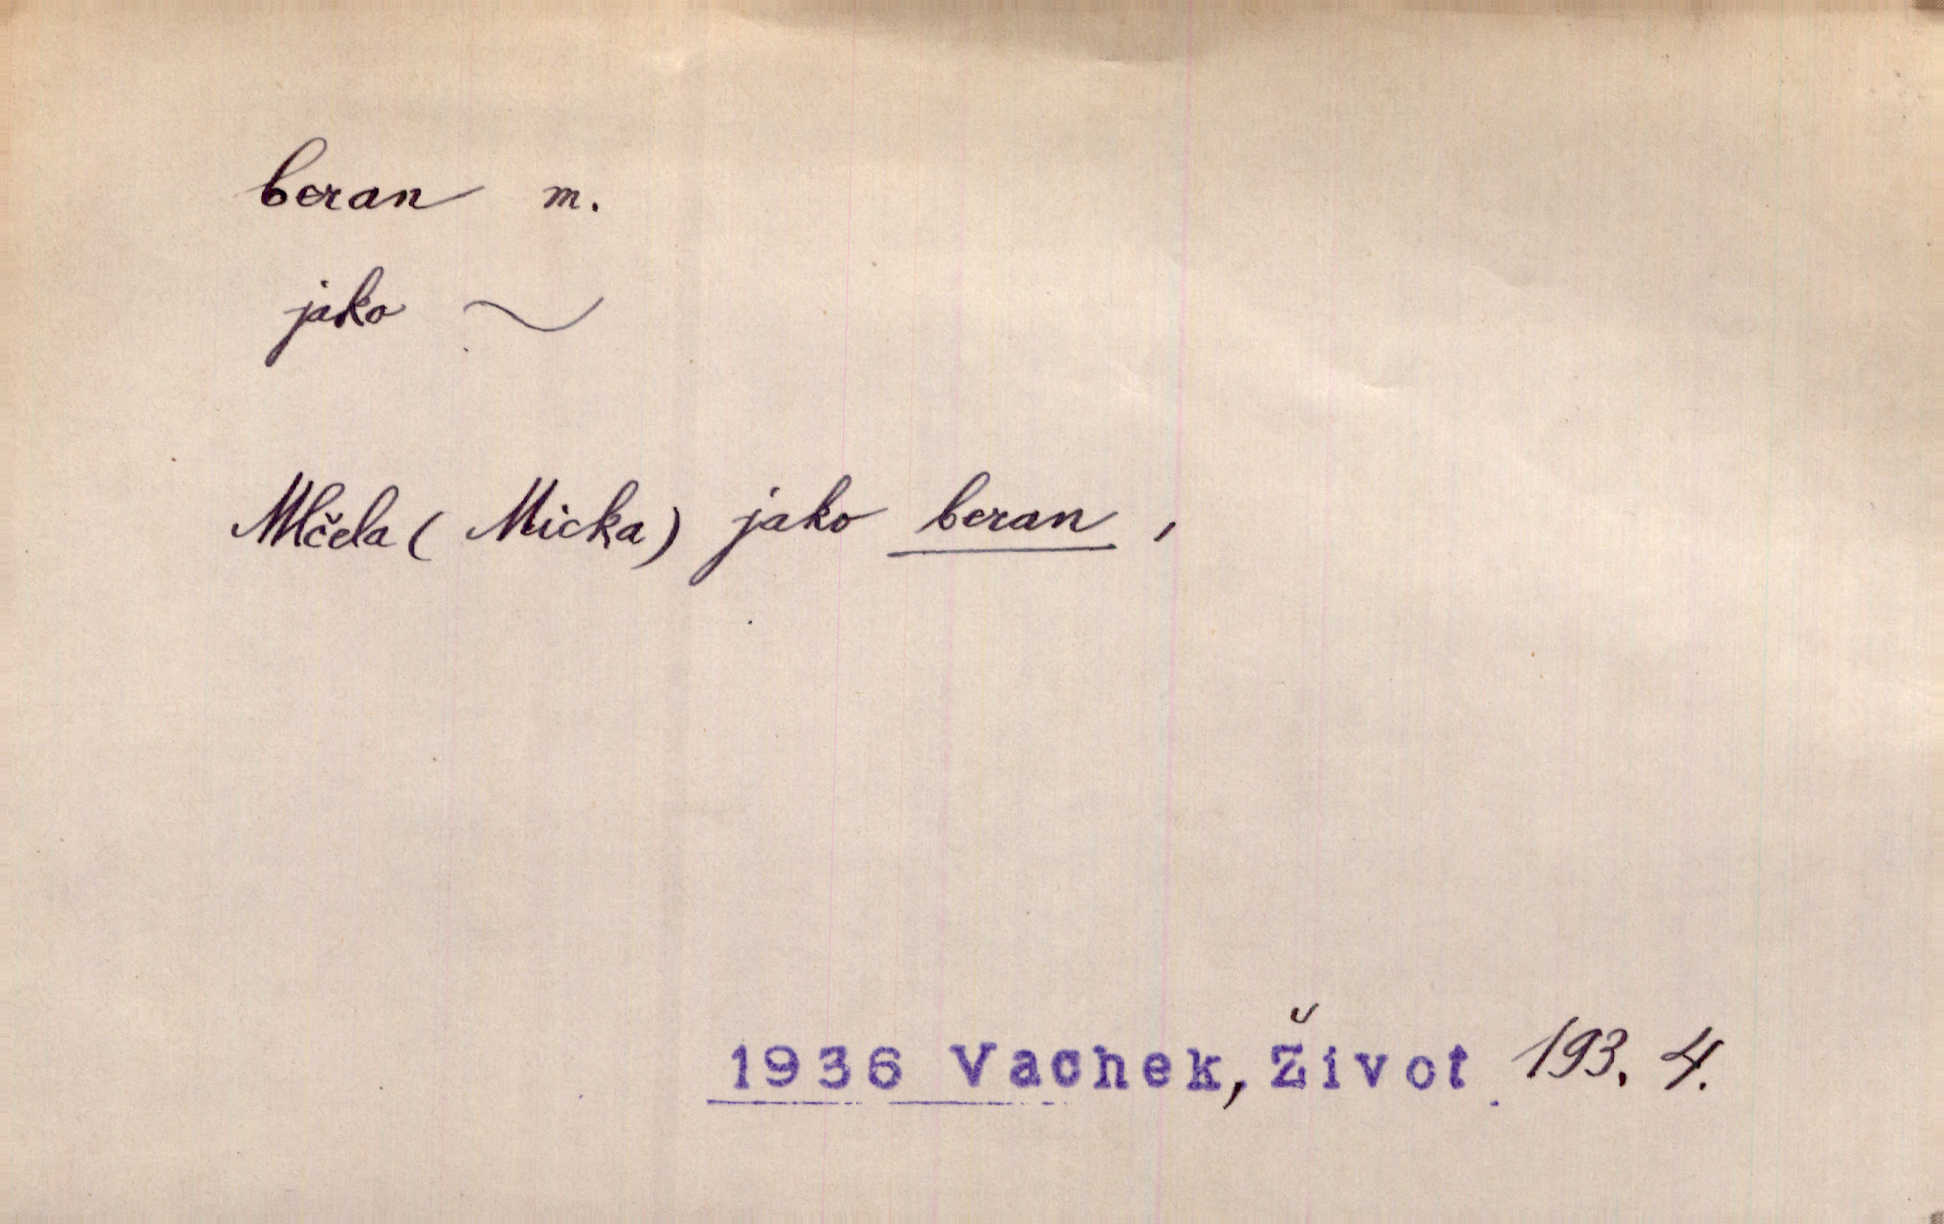 beran m.
jako ~
Mlčela (Micka) jako beran,
1936 Vachek, Život 193. 4.